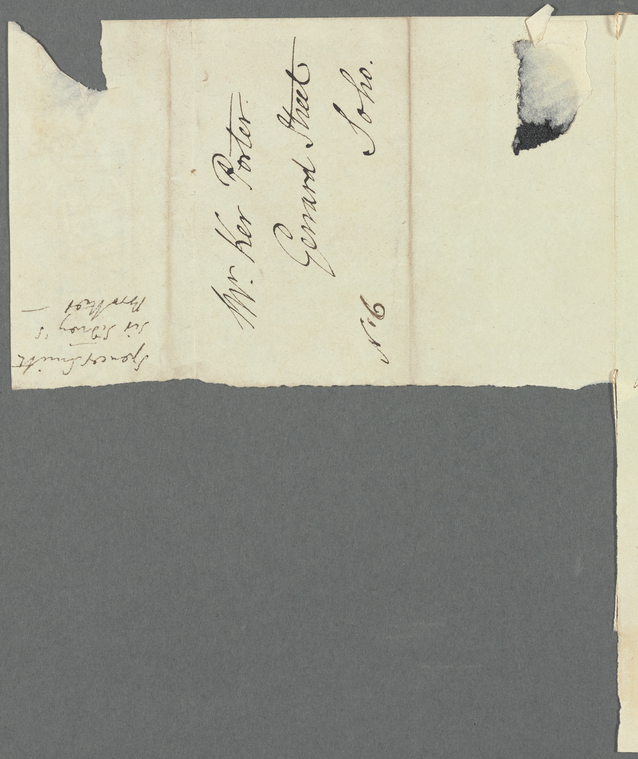 Mr. Ker Porter.
Gerrard Street
Soho.
No. 6
Spencer Smith
Sir Sidney's
Brother —